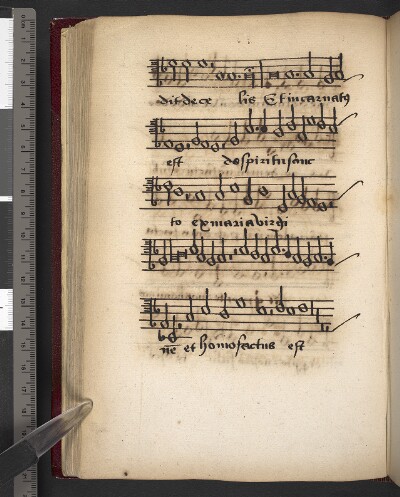 dit de ce lis Et incarnatꝰ
est de spiritu sanc
to ex maria virgi
ne et homo factus est